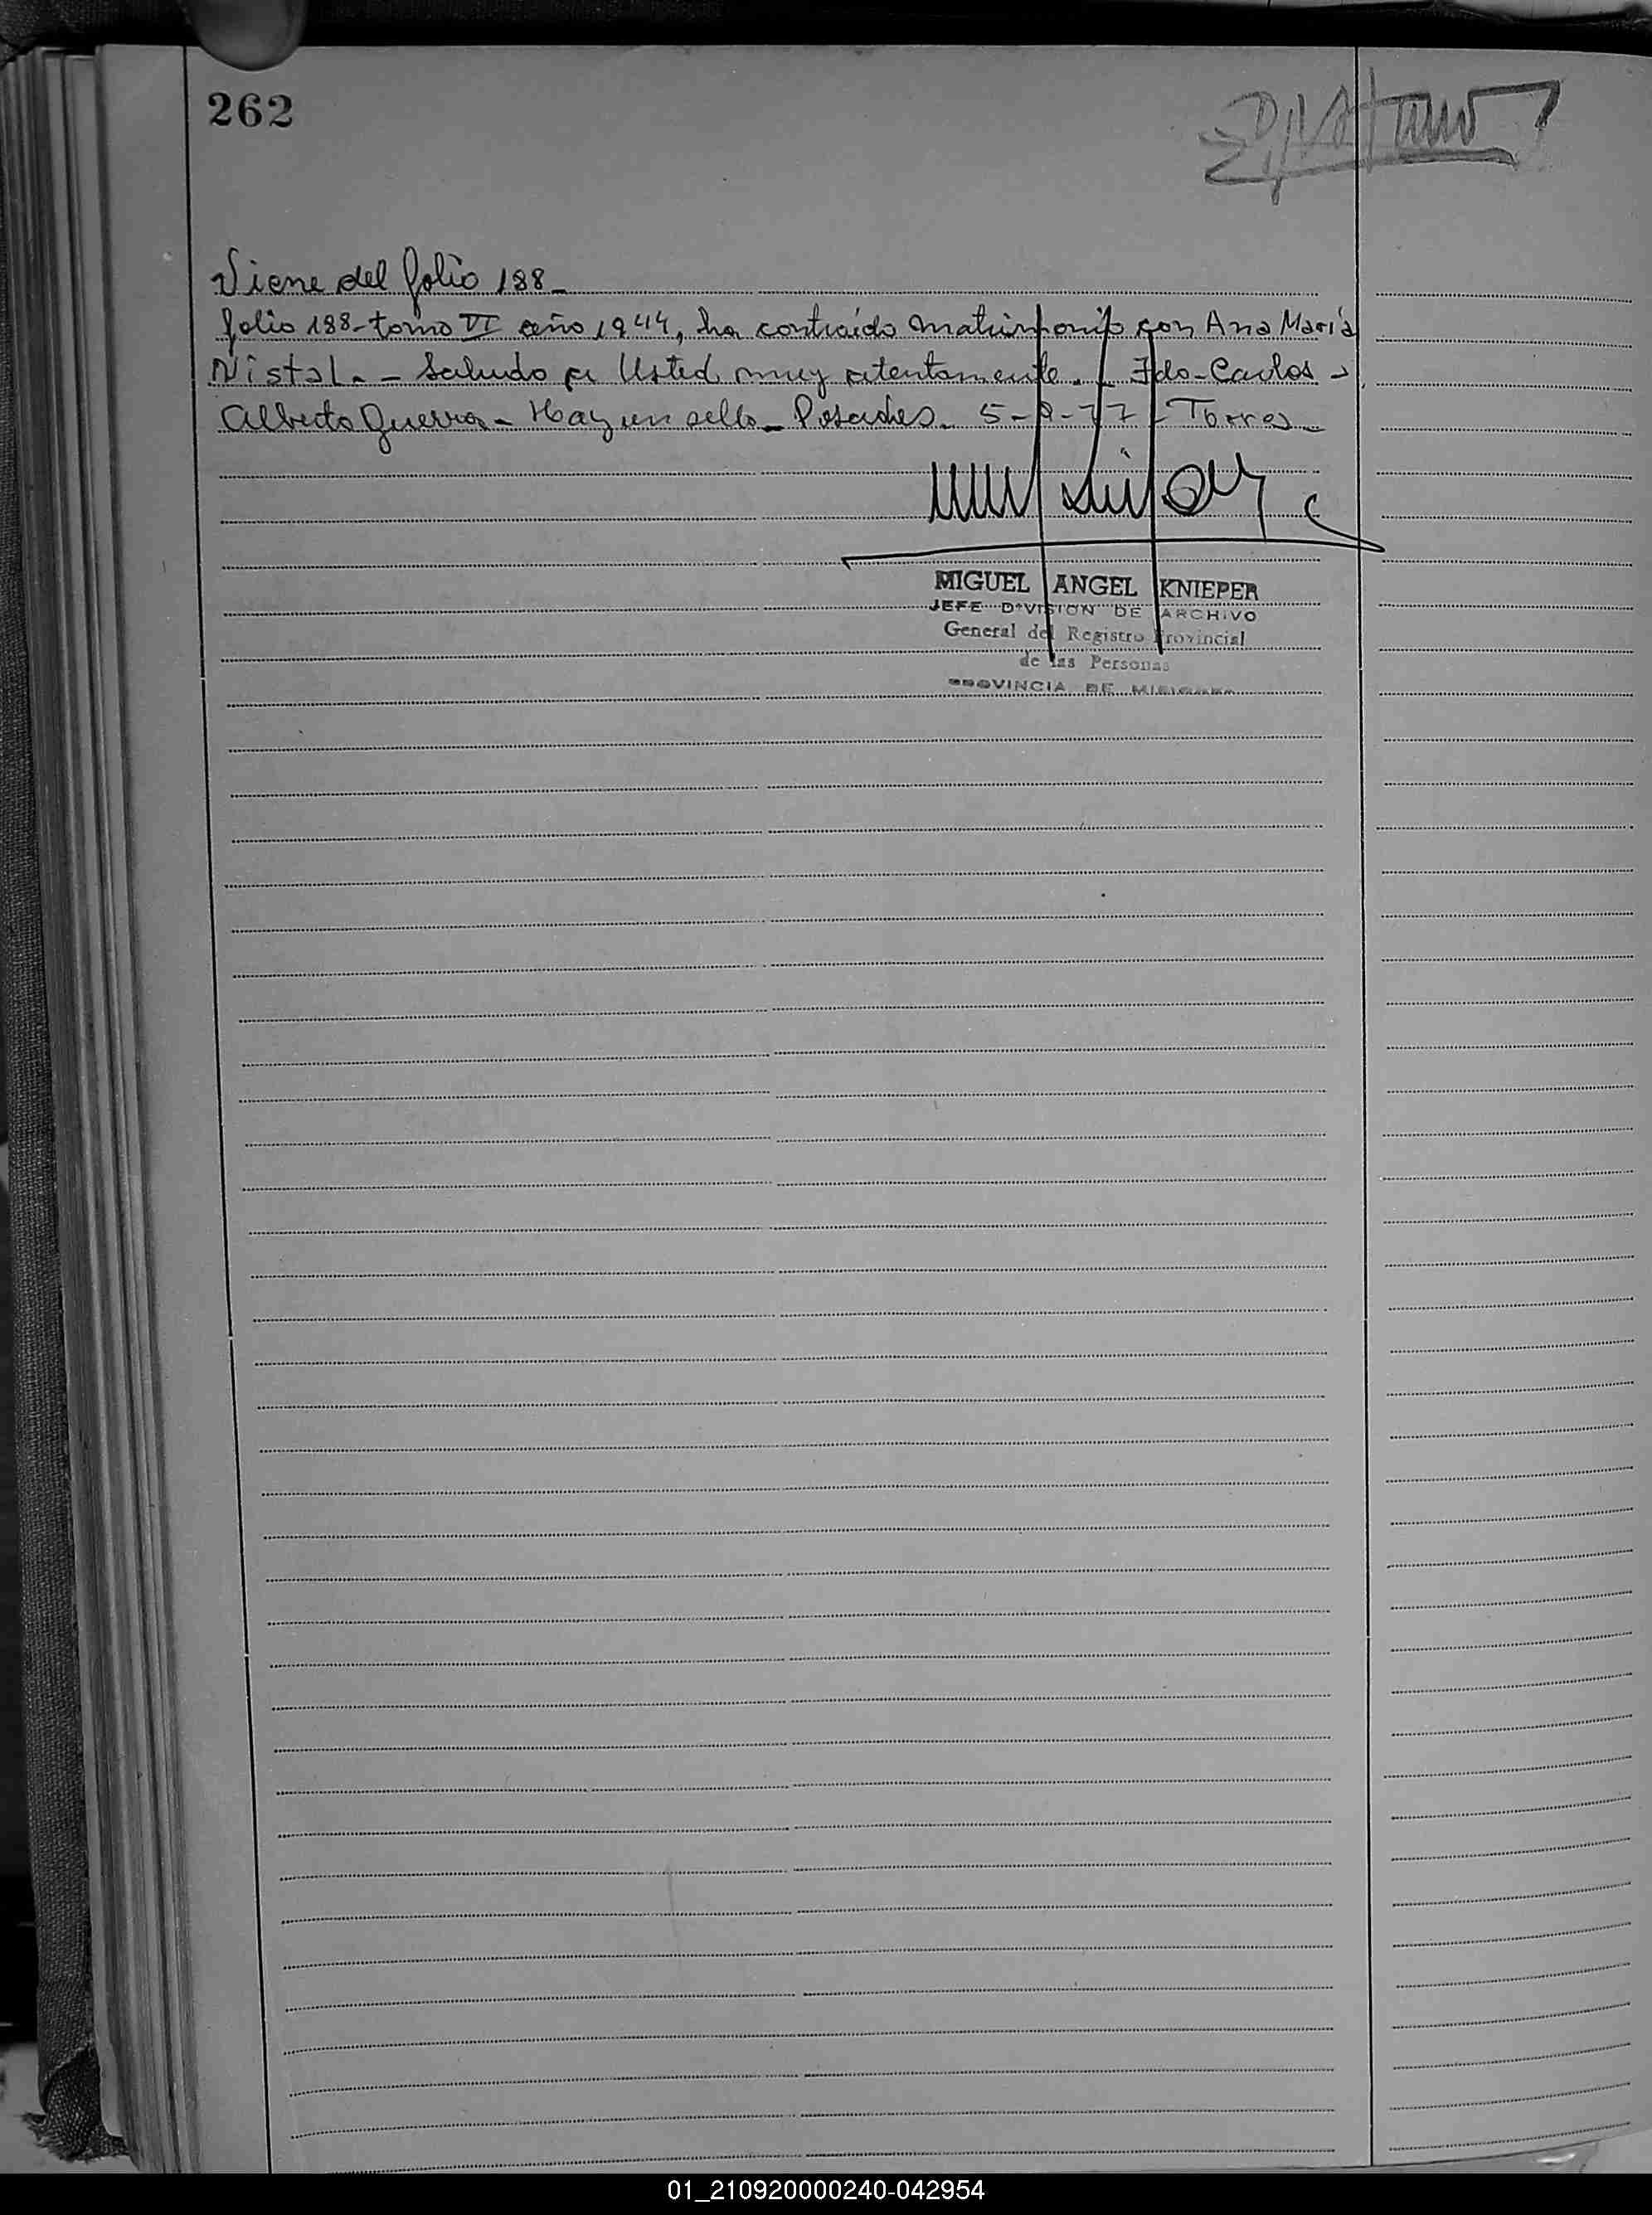 262
Viene del folio 188_
folio 188-tomo VI año 1944, ha contraído matrimonio con Ana María
Nistal. - Saludo a Usted muy atentamente. - Fdo-Carlos -
Alberto Guerra - Hay un sello - Posadas. 5-9-77 - Torres -
MIGUEL ANGEL KNIEPER
JEFE DIVISION DE ARCHIVO
General del Registro Provincial
de las Personas
PROVINCIA DE MISIONES
01_210920000240-042954